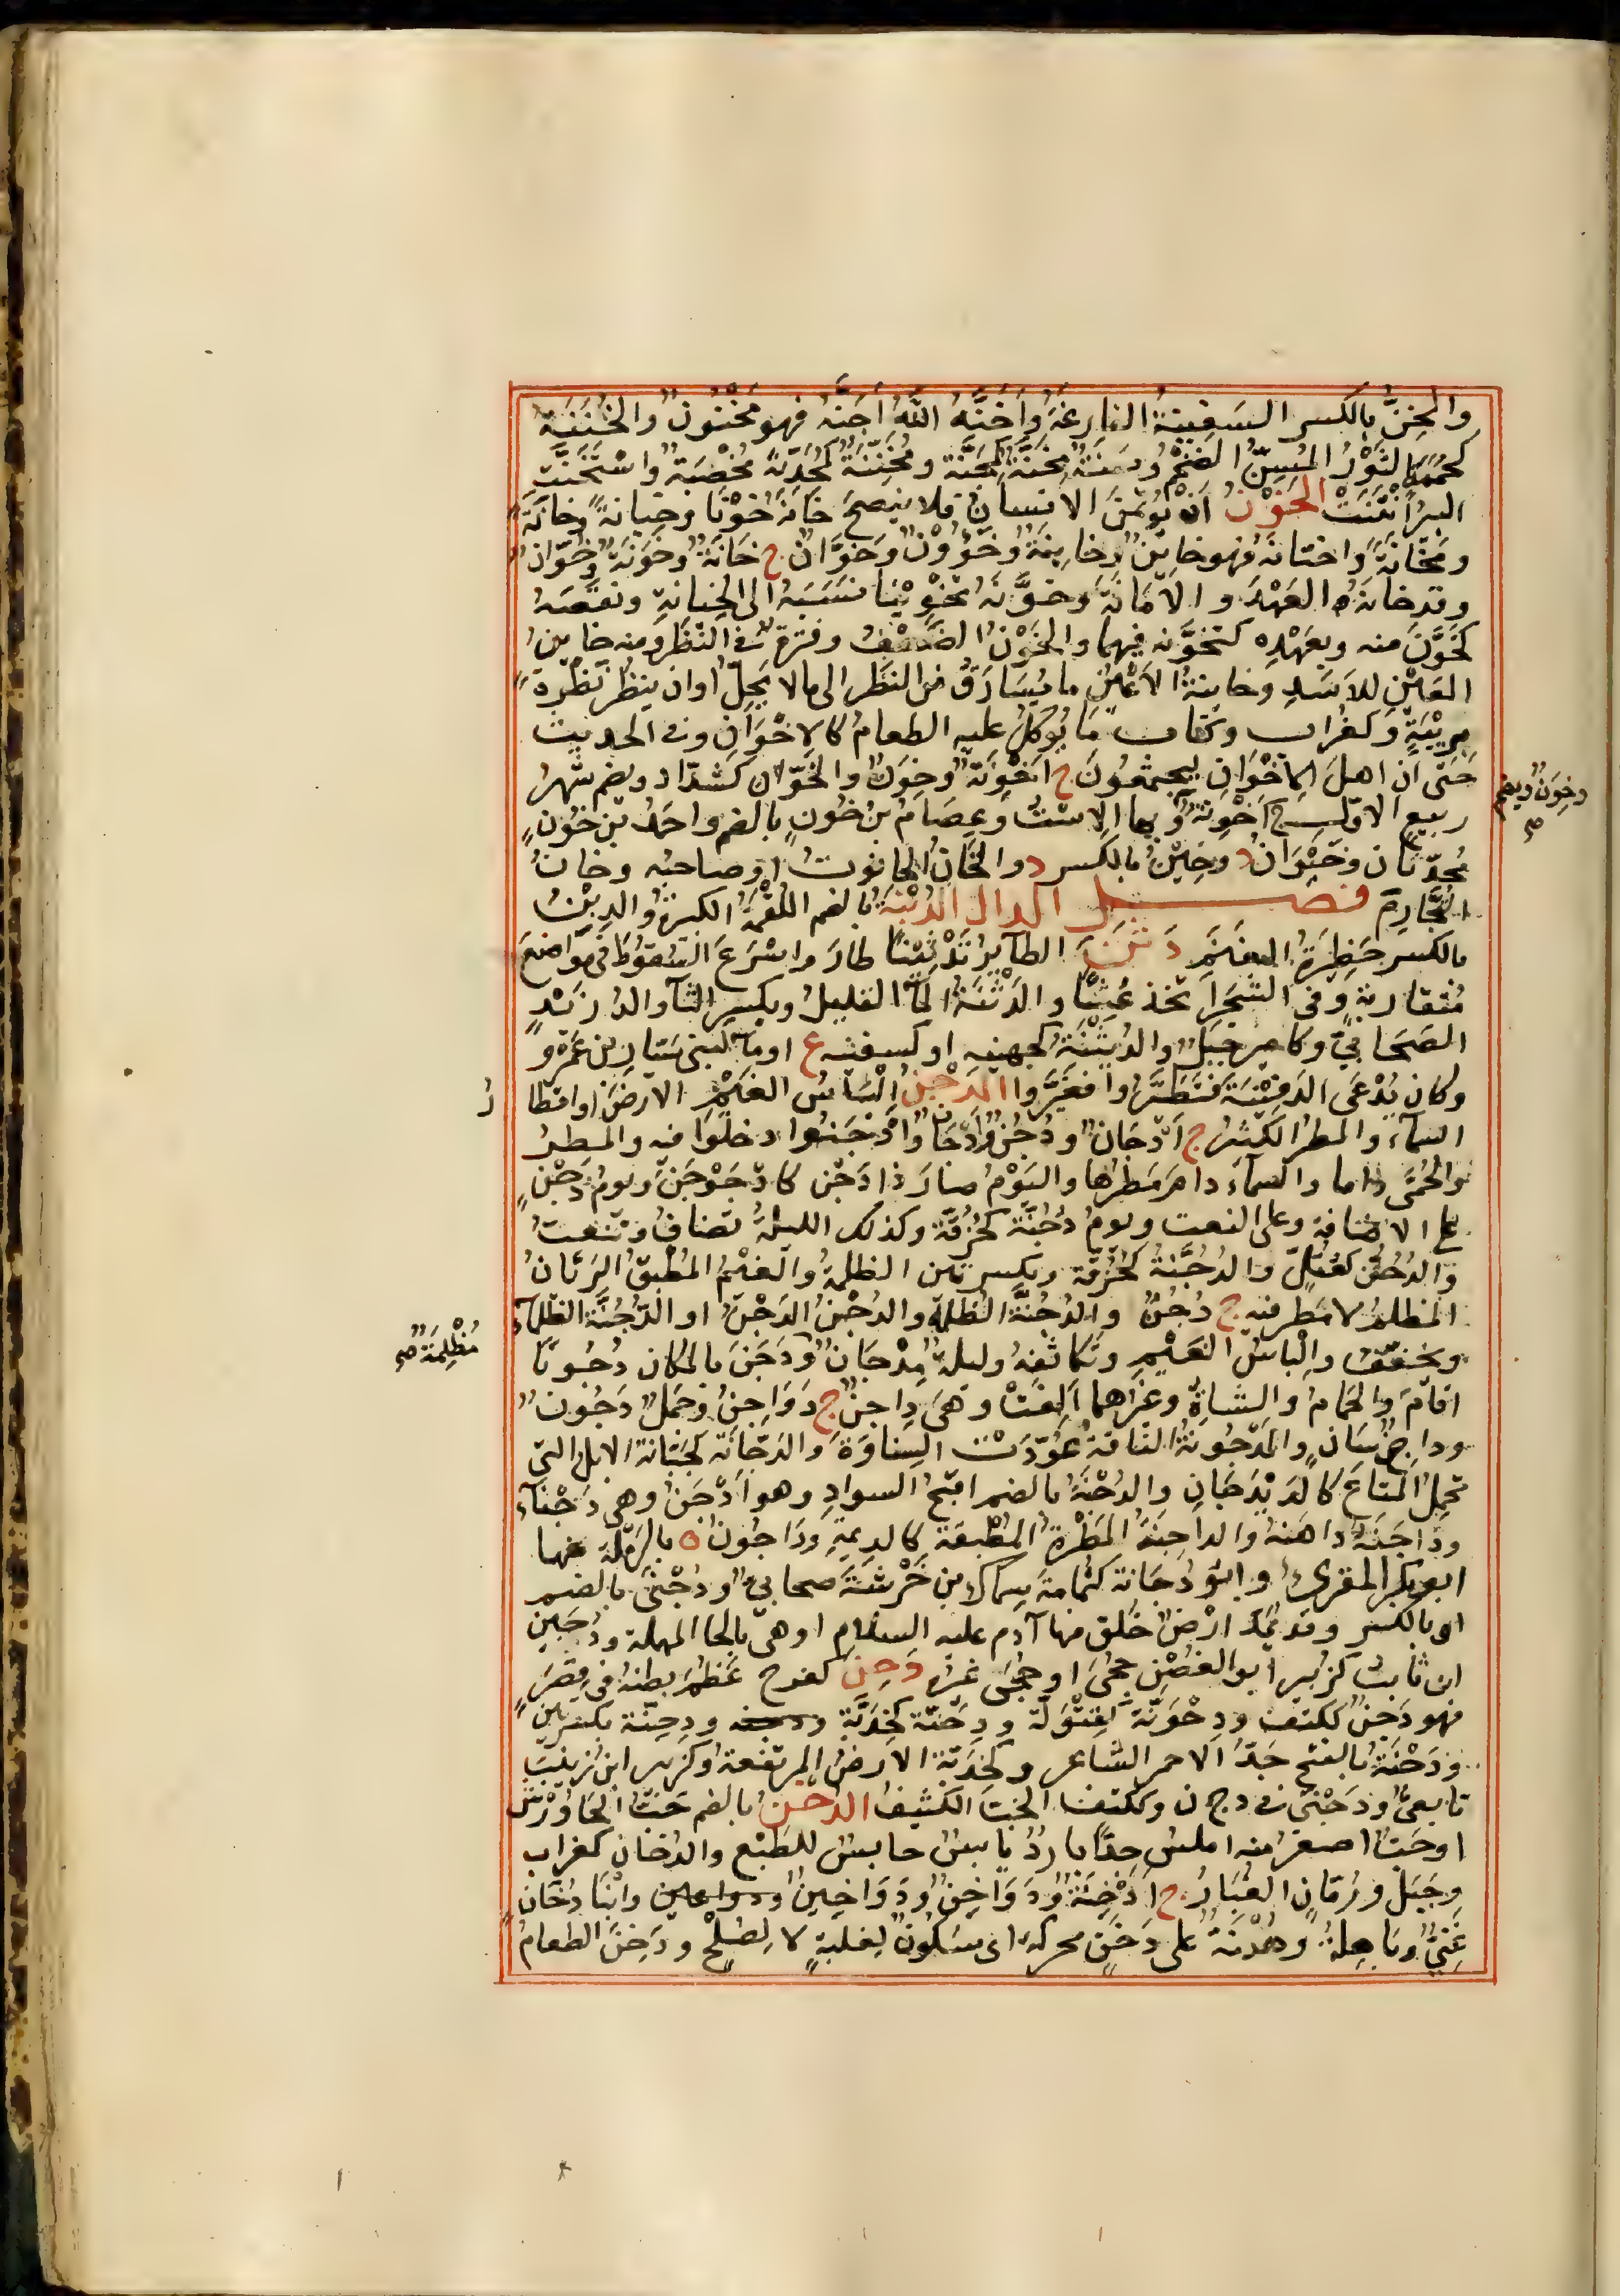 والخِنُّ بالكسر السَفِينةُ الفارغةُ وأَخَنَّهُ اللّهُ أَجَنَّهُ فهو مَخْنُونٌ والخُنَنَةُ
كهُمَزَةٍ الثَوْرُ المُسِنُّ الضَخْمُ وسَنَةٌ مِخَنَّةٌ كمِجَنَّة ومُخِنَّةٌ كمُحِدَّةٍ مُخْصِبَةٌ واسْتَخَنَّتِ
البِئْرُ أَنْتَنَتْ الخَوْنُ أن يُؤْتَمَنَ الانسانُ فلا ينصحَ خانَهُ خَوْنًا وخِيانةً وخانَةً
ومَخَانَةً واخْتانَهُ فهو خايِنٌ وخايِنَةٌ وخَؤُوْنٌ وخَوَّانٌ ج خَانَةٌ وخَوَنَةٌ وخُوَّانٌ
وقد خانَهُ العَهْدَ والأَمَانَةَ وخَوَّنَهُ تَخْوِيْنًا نَسَبَهُ الى الخِيانةِ ونَقَصَهُ
كخَوَّنَ منه وتعَهَّدَه كتَخَوَّنَه فيهما والخَوْنُ الضَعْفُ وفَتْرَةٌ في النَظَرِ ومنه خاينُ
العَيْنِ للأَسَدِ وخاينةُ الأَعْيُنِ ما يُسَارَقُ من النظَرِ الى ما لا يَحِلُّ أو ان ينظُرَ نَظْرَةً
بِرِيْبَةٍ وكغُرابٍ وكتابٍ ما يُؤْكَلُ عليه الطعامُ كالإِخْوَانِ وفي الحديث
حتّى انَّ اهلَ الإِخْوَانِ ليجتمعُونَ ج أَخْوِنَةٌ وخُوْنٌ والخَوَّانُ كشدّاد ويضم شهرُ
ربيعٍ الأوّل ج أَخْوِنَةٌ وبها الإِسْتُ وعِصَامُ بنُ خُونٍ بالضم واحمدُ بنُ خُوْنٍ
مُحَدِّثانِ وخَيْوَانُ د وخِيْنُ بالكسر د والخَانُ الحانوتُ او صاحبُه وخانُ
التُجَّارِ م فصل الدال الدُبْنَةُ بالضم اللُقْمَةُ الكبيرةُ والدِبْنُ
بالكسر حَظِيرَةُ الغَنَم دَثَنَ الطائِرُ تَدْثِيْنًا طارَ واسْرَعَ السُقُوطَ في مَوَاضِعَ
مُتقاربةٍ وفي الشَجَرِ اتّخذ عُشًّا والدَثْنَةُ المآ القليلُ وبكسر الثآ والدُ زَيْدٍ
الصَحَابيِّ وكامِيرٍ جَبَلٌ والدُثَيْنَةُ كجهينه او كسفينه ع او مآ لبنى سَيّارِ بن عَمْرٍو
وكان يُدْعَى الدَفِيْنَةَ فتَطَيَّرُوا فغَيَّرُوا الدَجْنُ إِلْبَاسُ الغَيْمِ الارضَ او اقطار
السمآءِ والمطرُ الكثيرُ ج أَدْجَانٌ ودُجُنٌ ودِجَانٌ وأَدْجَنُوا دخلوا فيه والمطرُ
والحُمَّى داما والسمآءُ دام مَطَرُها واليَوْمُ صارَ ذا دَجْنٍ كادْجَوْجَنَ ويومُ دَجْنٍ
على الاضافة وعلى النعت ويومُ دُجُنَّةٍ كحُزُقَّة وكذلك الليلةُ تضافُ وتُنعتُ
والدُجُنُّ كعُتُلٍّ والدُجُنَّةُ كحُزُقَّة وبكسرتين الظلمةُ والغَيْمُ المُطْبِقُ الرَيَّانُ
المظلمُ لا مَطَرَ فيه ج دُجُنٌّ والدُجُنَّةُ الظُلمةُ والدُجْنُ الدَجْنُ او الدُجُنَّةُ الظلمآءُ
ويخفَّفُ والْبَاسُ الغَيْمِ وتكاثُفُهُ وليلةٌ مِدْجَانٌ ودَجَنَ بالمكان دُجُونًا
اقامَ والحَمامُ والشاةُ وغيرُهما أَلِفَتْ وهي دَاجِنٌ ج دَوَاجِنُ وجَمَلٌ دَجُونٌ
وداجِنٌ سَانٍ والمَدْجُونَةُ الناقةُ عُوِّدَتْ السِناوَةَ والدَجّانَةُ كجَبّانة الابلُ التي
تحمِلُ المتاعَ كالدَيْدَجَانِ والدُجْنَةُ بالضم اقبَحُ السوادِ وهو أَدْجَنُ وهي دَجْنَآءُ
ودَاجَنَهُ داهَنَهُ والداجِنَةُ المَطْرَةُ المُطْبِقَةُ كالدِيمةِ ودَاجُونُ ة بالرَمْلَة منها
ابو بكر المقرىءُ وابو دُجَانَةَ كثُمامَة سِماكُ بن خَرَشَةَ صحابيٌّ ودُجْنَى بالضم
او بالكسر وقد يُمَدُّ ارْضٌ خُلِقَ منها آدم عليه السلام او هي بالحا المهملة ودُجَيْن
ابن ثابتٍ كزُبير ابو الغُصْنِ جُحَى او جُحَى غيرُه دَحِنَ كفرح عَظُمَ بطنُه في قِصَرٍ
فهو دَحِنٌ ككتف ودِحْوَنَّةٌ كعِثْوَلَّة ودِحَنَّة كخِدَبَّة ودِحِنَّة بكسرتين
ودَحْنَةُ بالفتح جَدُّ الاحمر الشاعر وكخِدَبَّة الارضُ المرتفعةُ وكزبير ابنُ زبيبٍ
تابعىٌّ ودَحْنَى في د ج ن وككتف الخَبُّ الكَثِيفُ الدُخْنُ بالضم حَبُّ الجَاوَرْسِ
او حَبٌّ اصغرُ منه املسُ جدًّا باردٌ يابسٌ حابسٌ للطَبْعِ والدُخان كغراب
وجَبَلٍ ورُمّانٍ الغُبَارُ ج أَدْخِنَةٌ ودَوَاخِنُ ودَوَاخِينُ وابْنَا دُخَانٍ
غَنِيٌّ وباهِلَةُ وهُدْنَةٌ على دَخَنٍ محركة اى سُكُونٌ لعلّةٍ لا لِصُلْحٍ ودَخِنَ الطعامُ
وخِوَنٌ ويضم صح
ر
مُظْلِمَةٌ صح